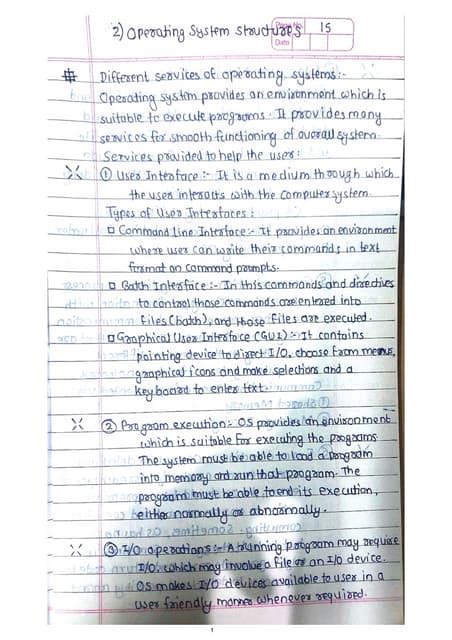 2) Operating System structures
Page No. 15
Date
# Different services of operating systems:-
Operating system provides an environment which is
suitable to execute programs. It provides many
services for smooth functioning of overall system.
Services provided to help the user:
① User Interface :- It is a medium through which
the user interacts with the computer system.
Types of User Interfaces :
□ Command line Interface:- It provides an environment
where user can write their commands in text
format on command prompts.
□ Batch Interface :- In this commands and directives
to control those commands are entered into
files (batch), and those files are executed.
□ Graphical User Interface (GUI) :- It contains
pointing device to direct I/O, choose from menus,
graphical icons and make selections and a
keyboard to enter text.
② Program execution:- OS provides an environment
which is suitable for executing the programs
The system must be able to load a program
into memory and run that program. The
program must be able to end its execution,
either normally or abnormally.
③ I/O operations:- A running program may require
I/O, which may involve a file or an I/O device.
OS makes I/O devices available to user in a
user friendly manner whenever required.
1